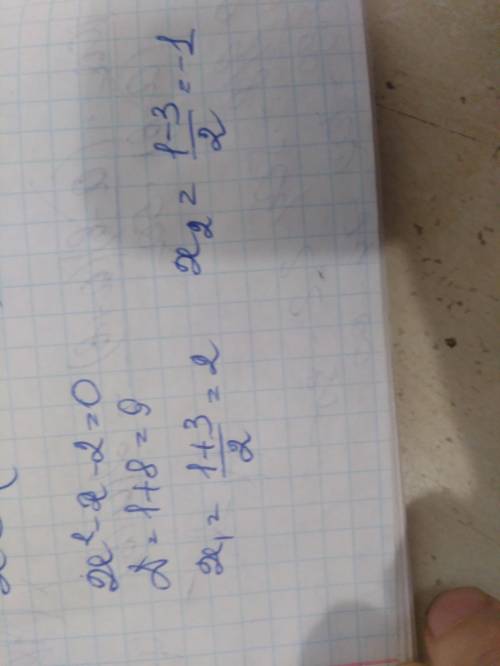 x² - x - 2 = 0
D = 1 + 8 = 9
x₁ = (1+3)/2 = 2 x₂ = (1-3)/2 = -1